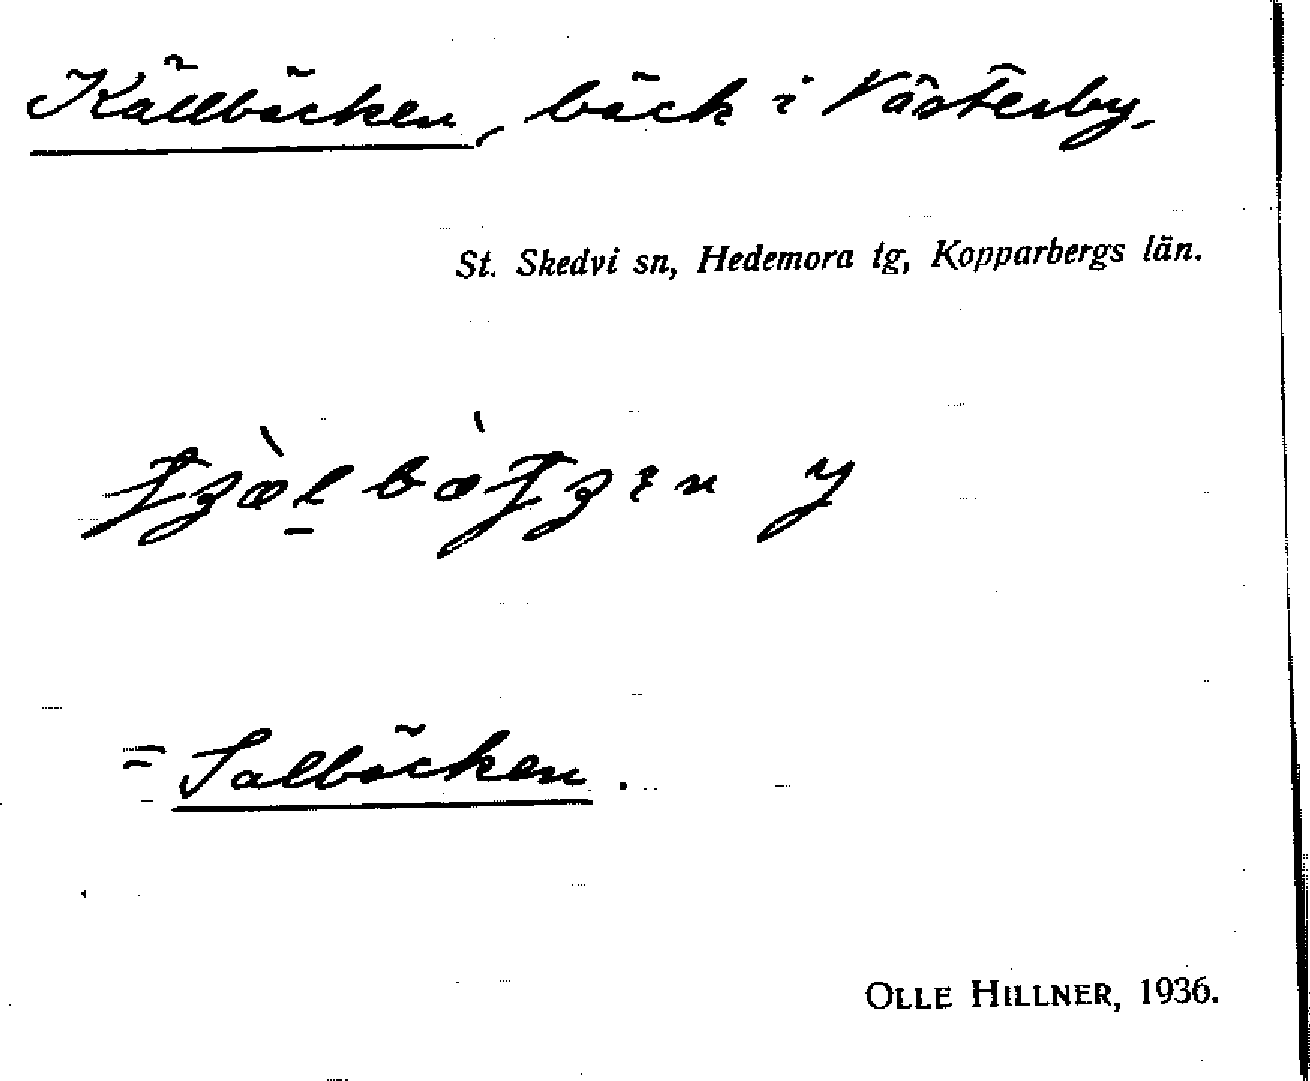 Källbäcken, bäck i Västerby.
St. Skedvi sn, Hedemora tg, Kopparbergs län.
= Salbäcken.
OLLE HILLNER, 1936.